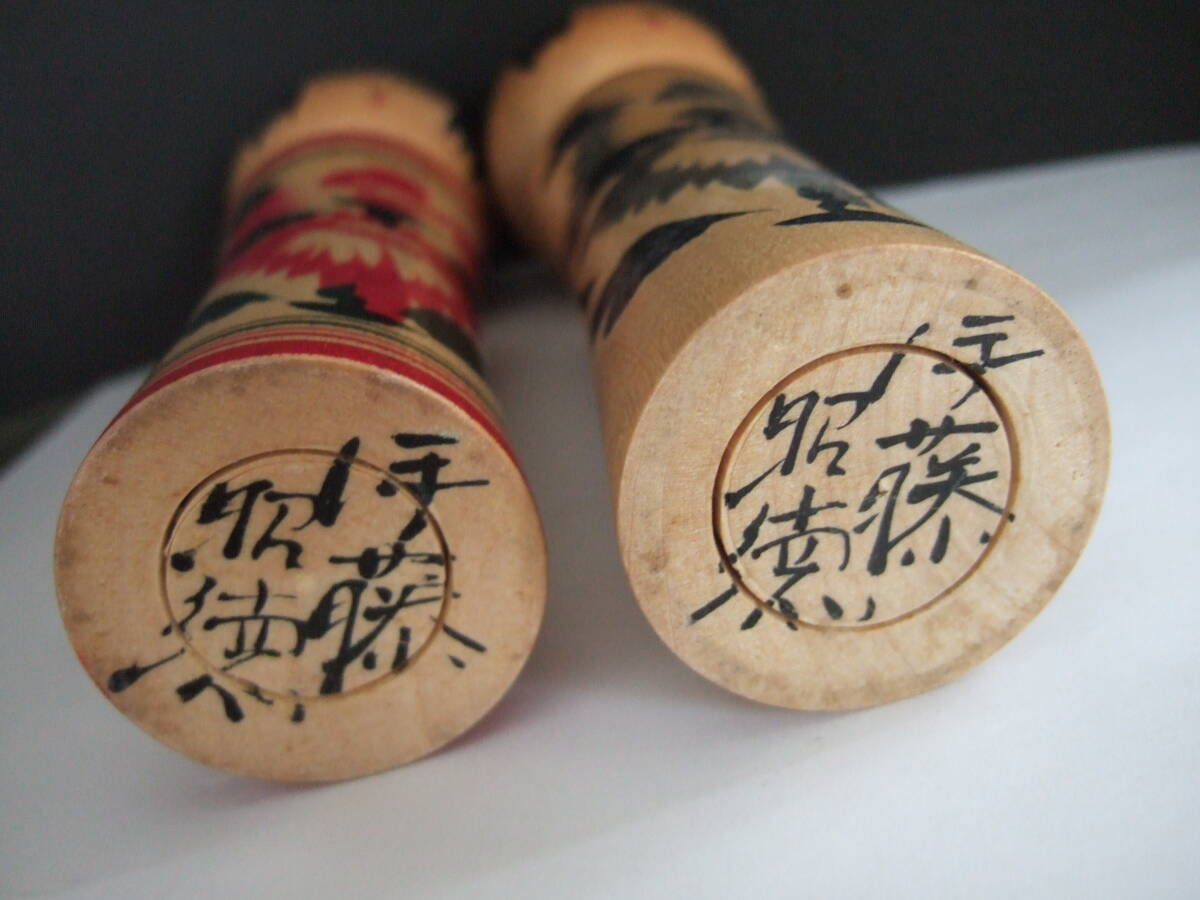 伊藤
昭徳
伊藤
昭徳